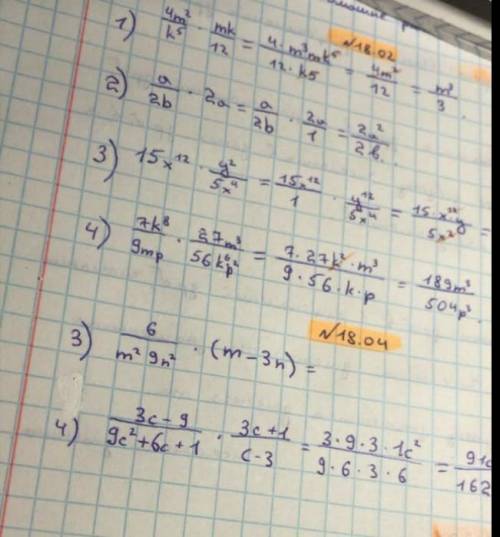 №18.02
1) 4m²/k⁵ · mk/12 = 4 m³mk⁵/12·k5 = 4m²/12 = m³/3.
2) a/2b · 2a = a/2b · 2a/1 = 2a²/2b.
3) 15x¹² · y²/5x⁴ = 15x¹²/1 · y¹²/5x⁴ = 15·x¹²y/5x² =
4) 7k⁸/9mp · 27m³/56k⁶p² = 7·27k²·m³/9·56·k·p = 189m³/504p².
№18.04
3) 6/m² 9n² · (m-3n) =
4) 3c-9/9c²+6c+1 · 3c+1/c-3 = 3·9·3·1c²/9·6·3·6 = 91c/162